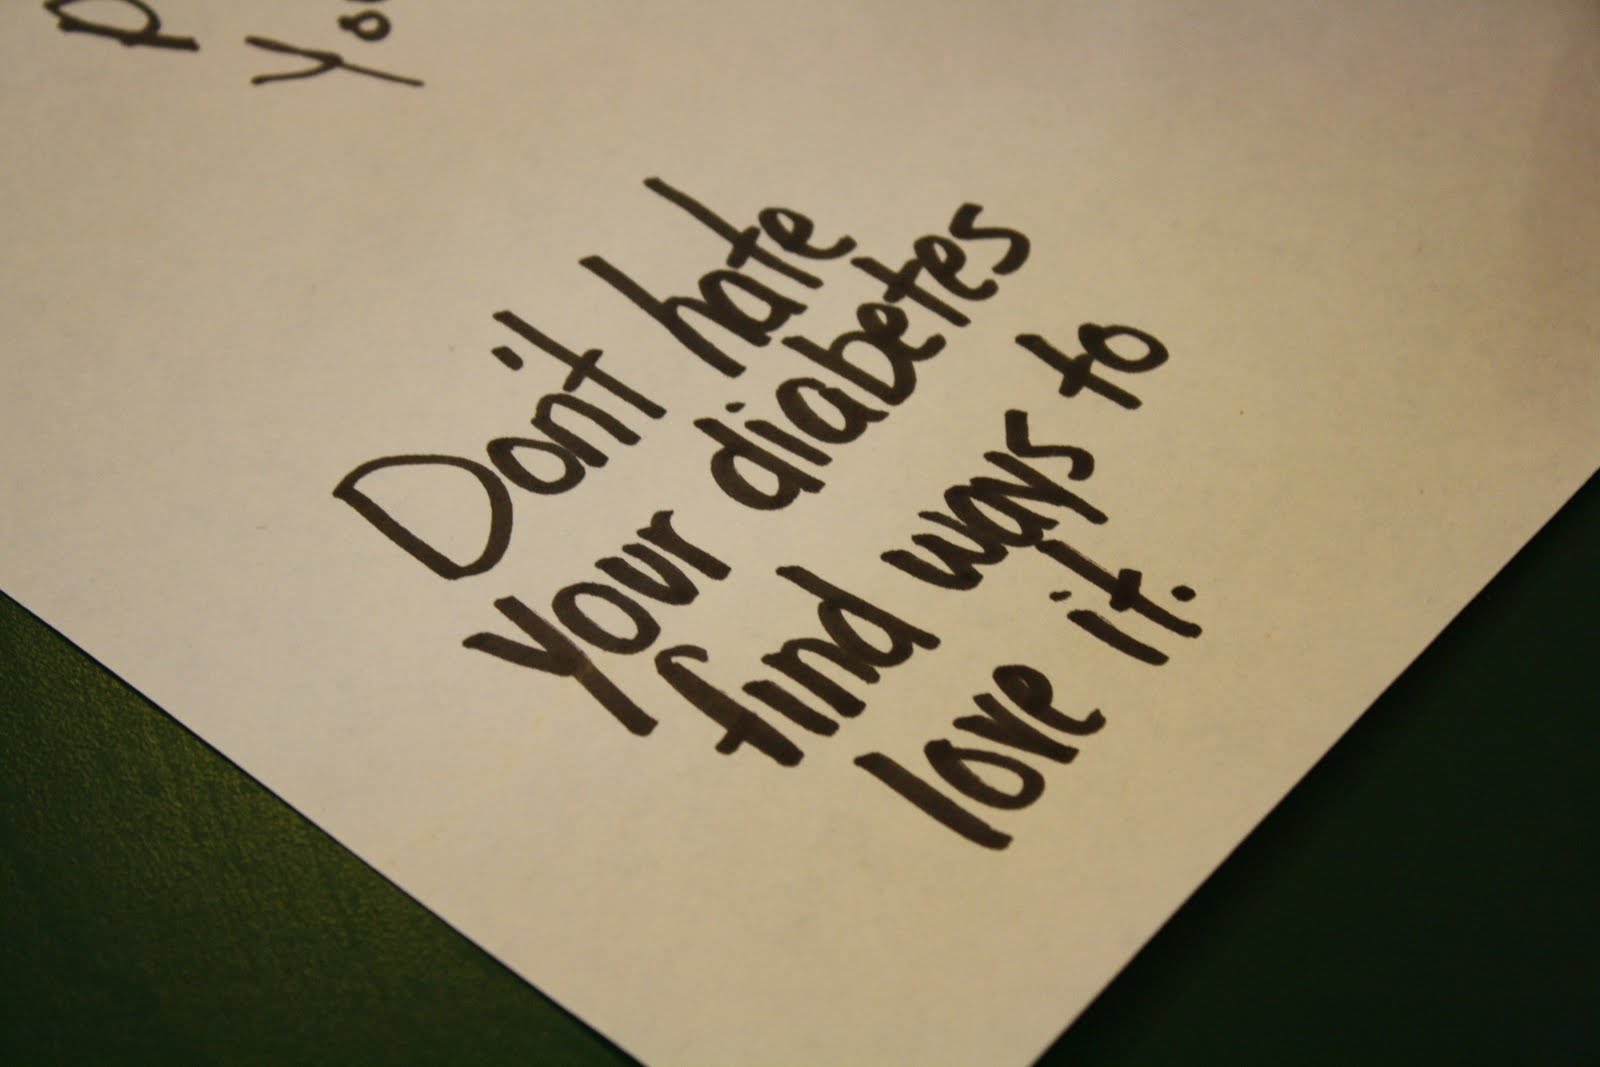 Don't hate
your diabetes
find ways to
love it.